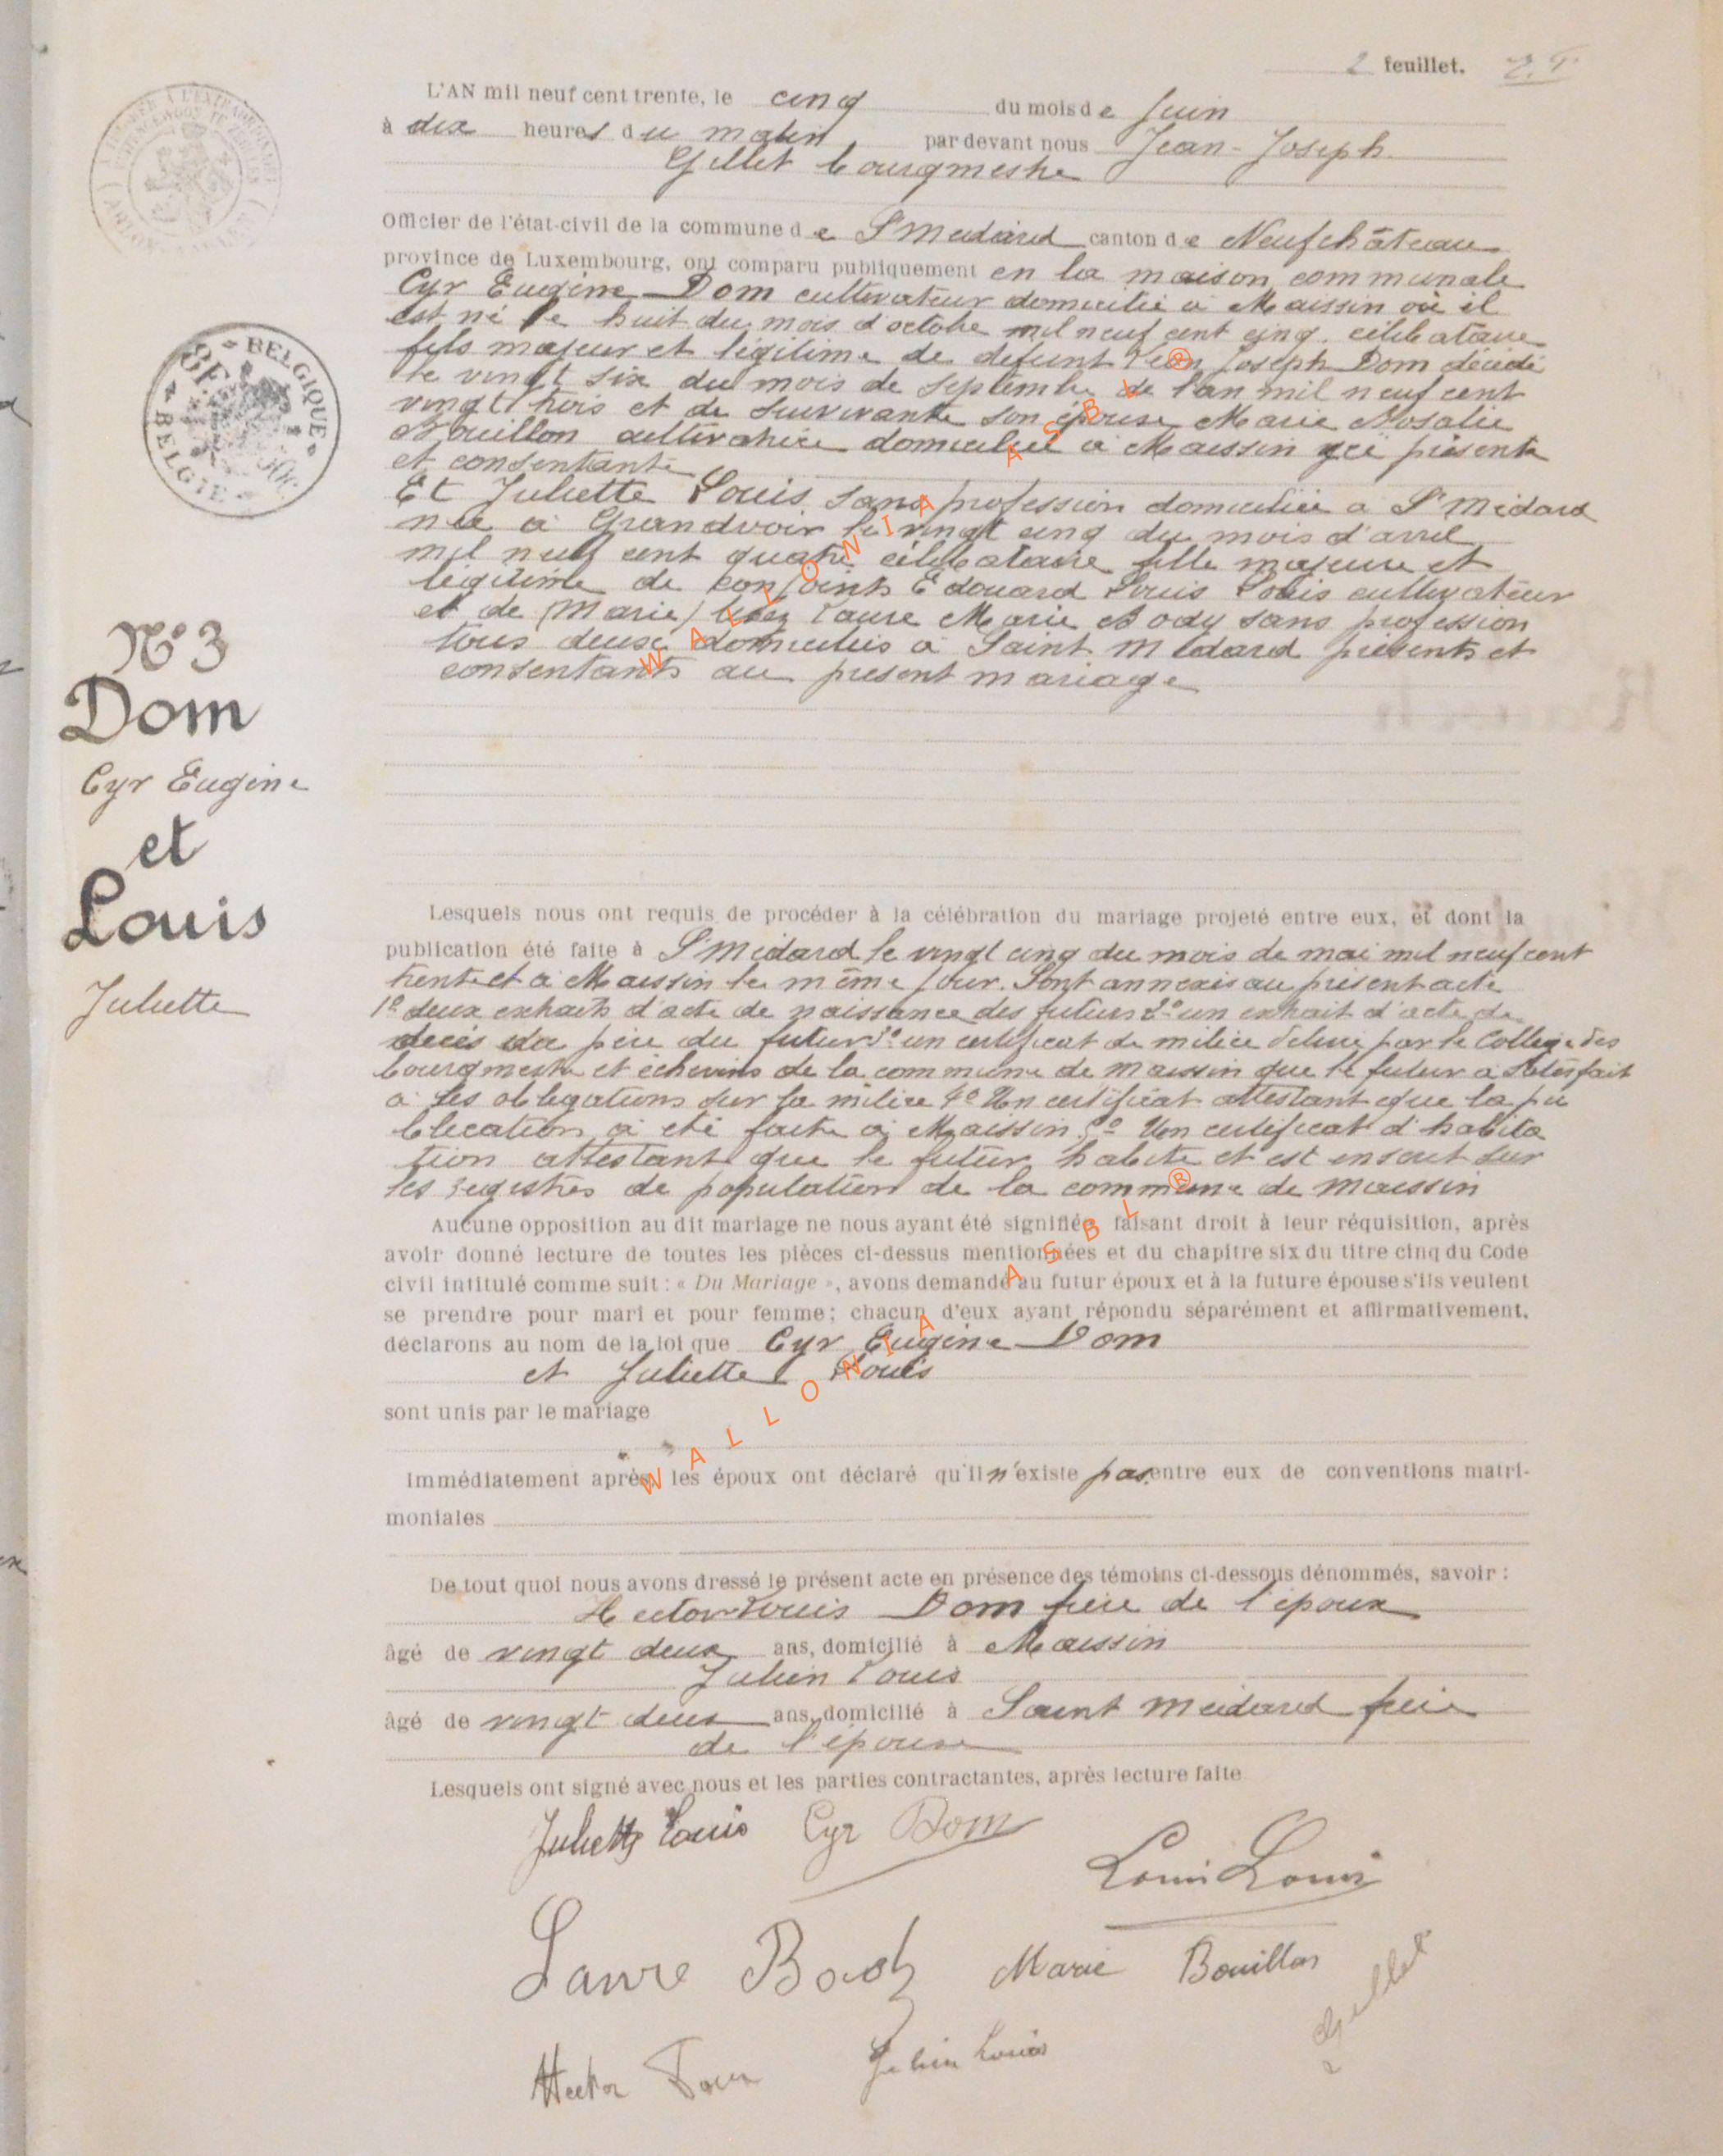 2 feuillet.
L'AN mil neuf cent trente, le cinq du mois de Juin
à dix heures du matin par devant nous Jean-Joseph
Gillet bourgmestre
Officier de l'état-civil de la commune de St Médard canton de Neufchâteau
province de Luxembourg, ont comparu publiquement en la maison communale
Cyr Eugène Dom cultivateur domicilié à Maissin où il
est né le huit du mois d'octobre mil neuf cent cinq. célibataire
fils majeur et légitime de défunt Léon Joseph Dom décédé
le vingt six du mois de septembre de l'an mil neuf cent
vingt trois et de survivante son épouse Marie Rosalie
Bouillon cultivatrice domiciliée à Maissin ici présente
et consentante
Et Juliette Louis sans profession domiciliée à St Médard
née à Grandvoir le vingt cinq du mois d'avril
mil neuf cent quatre célibataire fille majeure et
légitime de conjoints Edouard Louis Louis cultivateur
et de (Marie) Laure Marie Body sans profession
tous deux domiciliés à Saint Médard présents et
consentants au présent mariage
N° 3
Dom
Cyr Eugène
et
Louis
Juliette
BELGIQUE
BELGIE
Lesquels nous ont requis de procéder à la célébration du mariage projeté entre eux, et dont la
publication été faite à St Médard le vingt cinq du mois de mai mil neuf cent
trente et à Maissin le même jour. Sont annexés au présent acte
1° deux extraits d'acte de naissance des futurs 2° un extrait d'acte de
décès du père du futur 3° un certificat de milice délivré par le Collège des
bourgmestre et échevins de la commune de Maissin que le futur a satisfait
à ses obligations sur la milice 4° Un certificat attestant que la pu
blication a été faite à Maissin 5° Un certificat d'habita
tion attestant que le futur habite et est inscrit sur
les registres de population de la commune de Maissin
Aucune opposition au dit mariage ne nous ayant été signifiée, faisant droit à leur réquisition, après
avoir donné lecture de toutes les pièces ci-dessus mentionnées et du chapitre six du titre cinq du Code
civil intitulé comme suit : « Du Mariage », avons demandé au futur époux et à la future épouse s'ils veulent
se prendre pour mari et pour femme; chacun d'eux ayant répondu séparément et affirmativement,
déclarons au nom de la loi que Cyr Eugène Dom
et Juliette Louis
sont unis par le mariage
Immédiatement après, les époux ont déclaré qu'il n'existe pas entre eux de conventions matri-
moniales
De tout quoi nous avons dressé le présent acte en présence des témoins ci-dessous dénommés, savoir :
Hector Louis Dom frère de l'époux
âgé de vingt deux ans, domicilié à Maissin
Julien Louis
âgé de vingt deux ans, domicilié à Saint Médard frère
de l'épouse
Lesquels ont signé avec nous et les parties contractantes, après lecture faite
Juliette Louis Cyr Dom
Louis Louis
Laure Body Marie Bouillon
Gillet
Hector Dom Julien Louis
WALLONIA ASBL ®
WALLONIA ASBL ®